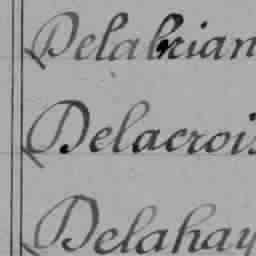 Delabrian
Delacrois
Delahay